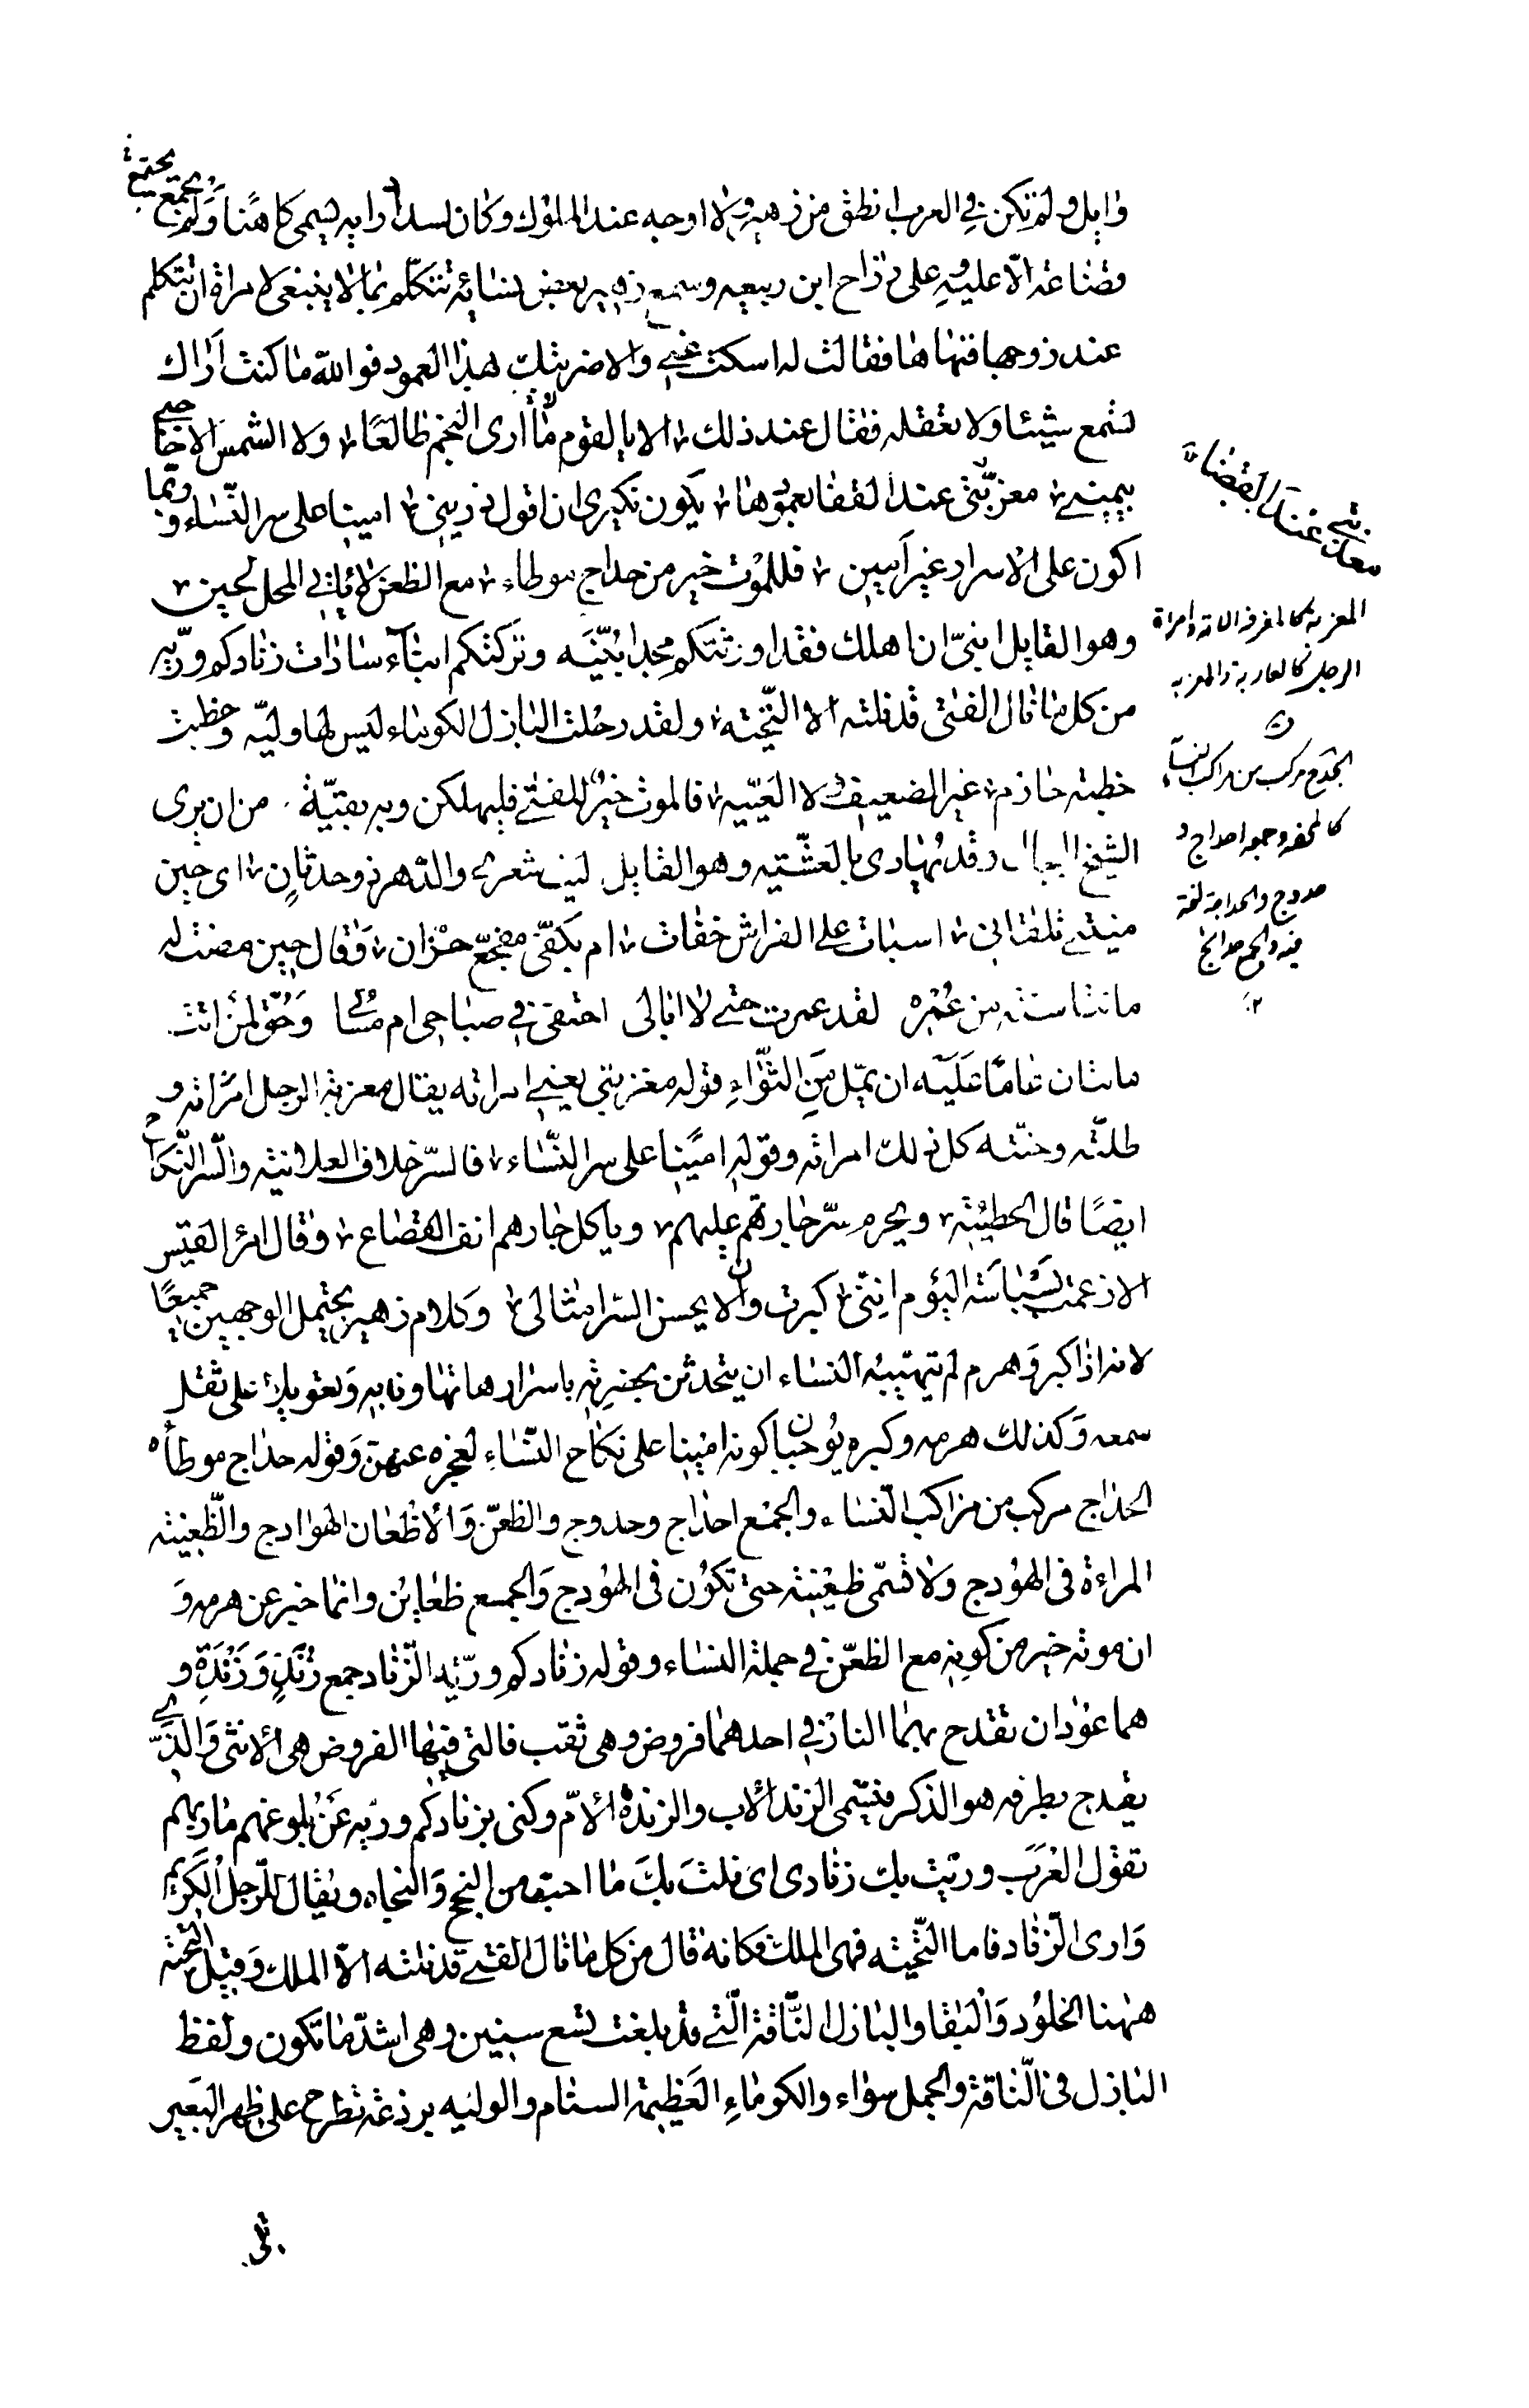 وابل ولم تكن في العرب انطق من زهير ولا اوجه عند الملوك وكان لسداد رايه يسمى كاهنا ولم يجتمع
قضاعة الا عليه وعلى رزاح ابن ربيعه وسمع زهير بعض نسائه تتكلم بما لا ينبغي لامراة ان تتكلم
عند زوجها فنهاها فقالت له اسكت عني والا ضربتك بهذا العمود فوالله ما كنت اراك
تسمع شيئا ولا تعقله فقال عند ذلك الا يالقوم لا ارى النجم طالعا ولا الشمس الا حاجبي
بيميني معزبتي عند القفا بعمودها يكون نكيري ان اقول ذريني امينا على سر النساء وربما
اكون على الاسرار غير امين فللموت خير من حداج موطاء مع الظعن لا ياتي المحل لحين
وهو القايل ابني ان اهلك فقد اورثتكم مجدا بنيه وتركتكم ابناء سادات زنادكم وريه
من كل ما نال الفتى قد نلته الا التحيه ولقد رحلت البازل الكوماء ليس لها وليه وخطبت
خطبة حازم غير الضعيف ولا العييه فالموت خير للفتى فليهلكن وبه بقية من ان يرى
الشيخ البجال وقد يهادى بالعشيه وهو القايل ليت شعري والدهر ذو حدثان اي حين
منيتي تلقاني اسبات على الفراش خفات ام بكفي مفجع حران وقال حين مضت له
مائتا سنة من عمره لقد عمرت حتى لا ابالي احتفي في صباحي ام مسائي وحق لمن اتت
مائتان عاما عليه ان يمل من الثواء قوله معزبتي يعني امراته يقال معزبة الرجل امراته و
طلته وحنته كل ذلك امراته وقوله امينا على سر النساء فالسر خلاف العلانيه والسر النكاح
ايضا قال الحطيئه ويحرم سر جارتهم عليهم وياكل جارهم انف القصاع وقال امرؤ القيس
الا زعمت بسباسة اليوم انني كبرت وان لا يحسن السر امثالي وكلام زهير يحتمل الوجهين جميعا
لانه اذا كبر وهرم لم يتهيبه النساء ان يتحدثن بحضرته باسرارها تهاونا به وتعويلا على ثقل
سمعه وكذلك هرمه وكبره يوجبان كونه امينا على نكاح النساء لعجزه عنهن وقوله حداج موطأه
الحداج مركب من مراكب النساء والجمع احداج وحدوج والظعن والاظعان الهوادج والظعينه
المراءة في الهودج ولا تسمى ظعينه حتى تكون في الهودج والجمع ظعاين وانما خبر عن هرمه و
ان موته خير من كونه مع الظعن في جملة النساء وقوله زنادكم وريه الزناد جمع زند وزندة و
هما عودان تقدح بهما النار في احدهما فروض وهي ثقب فالتي فيها الفروض هي الانثى والذي
يقدح بطرفه هو الذكر فتسمى الزند الاب والزندة الام وكنى بزنادكم وريه عن بلوغهم ماربهم
تقول العرب وريت بك زنادي اي نلت بك ما احب من النجح والنجاة ويقال للرجل الكريم
واري الزناد فاما التحيه فهي الملك فكانه قال من كل ما نال الفتى قد نلته الا الملك وقيل التحية
ههنا الخلود والبقا والبازل الناقة التي قد بلغت تسع سنين وهي اشد ما تكون ولفظ
البازل في الناقة والجمل سواء والكوماء العظيمة السنام والوليه برذعة تطرح على ظهر البعير
معزبتي عند القفا
المعزبة كالمغرفة الامة وامراة
الرجل كالعازبة والمعزبه
ق
الحدج مركب من مراكب النساء
كالمحفه وجمعه احداج و
حدوج والحداجة لغة
فيه والجمع حدائج
١٢